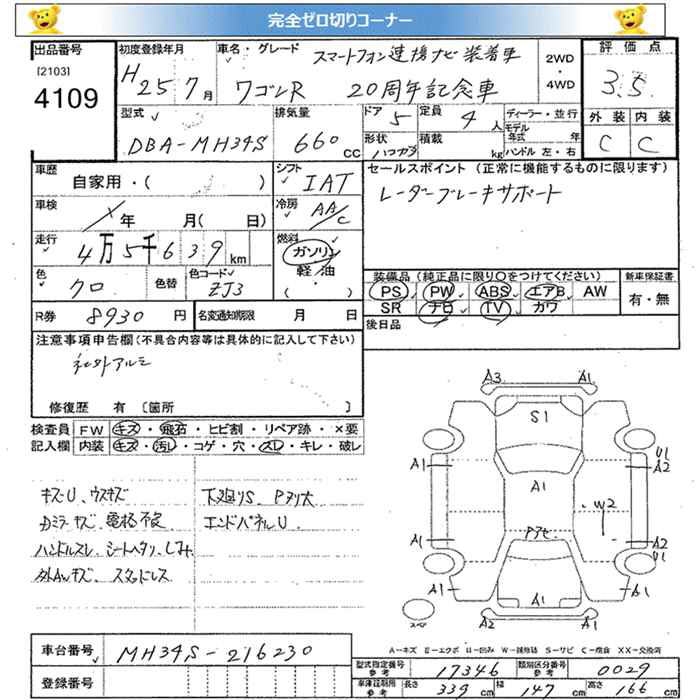 完全ゼロ切りコーナー
出品番号
[2103]
4109
初度登録年月
H25年7月
車名・グレード
スマートフォン連携ナビ装着車
ワゴンR 20周年記念車
2WD
・
4WD
評価点
3.5
外装 内装
C C
型式
DBA-MH34S
排気量
660cc
ドア 5
定員 4人
形状
積載 kg
ディーラー・並行
モデル年式 年
ハンドル 左・右
車歴
自家用・( )
シフト
IAT
セールスポイント (正常に機能するものに限ります)
レーダーブレーキサポート
車検
年 月( 日)
冷房
AA/C
走行
4万5千639km
燃料
ガソリン
軽/油
・( )
色
クロ
色替
色コード
ZJ3
装備品 (純正品に限り○をつけてください)
PS PW ABS エアB AW
SR ナビ TV カワ
新車保証書
有・無
R券 8930円
名変通知期限 月 日
後日品
注意事項申告欄(不具合内容等は具体的に記入して下さい)
社外アルミ
修復歴 有 〔箇所 〕
検査員
記入欄
FW キズ・飛石・ヒビ割・リペア跡・×要
内装 キズ・汚レ・コゲ・穴・スレ・キレ・破レ
キズU、ウスキズ
Dミラーキズ、電格不良
ハンドルスレ、シートヘタリ、しみ
外AWキズ、スタッドレス
下廻りS、Pヌリ大
エンドパネルU
A3 A1
S1
A1 U1
A2
A1
W2
Pアセ
A1 A2
U1
A1 A1 A1
A2 A1
スペア
A-キズ E-エクボ U-凹み W-補修跡 S-サビ C-腐食 XX-交換済
車台番号
MH34S-216230
登録番号
型式指定番号
参考
17346
類別区分番号
参考
0029
車庫証明用
参考
長さ 339cm
幅 147cm
高さ 166cm